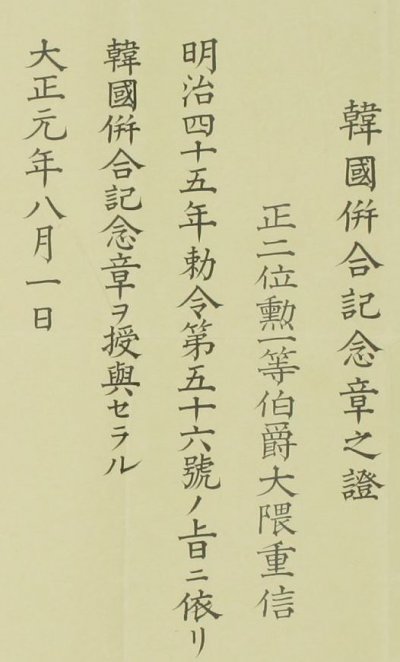 韓國倂合記念章之證
正二位勲一等伯爵大隈重信
明治四十五年勅令第五十六號ノ旨ニ依リ
韓國倂合記念章ヲ授與セラル
大正元年八月一日